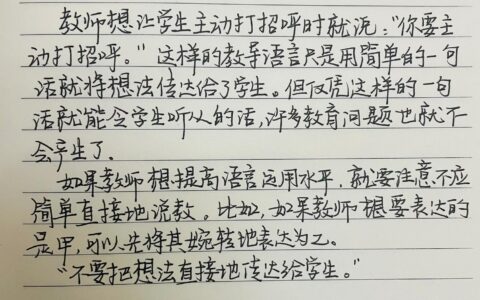 教师想让学生主动打招呼时就说:“你要主
动打招呼。”这样的教导语言只是用简单的一句
话就将想法传达给了学生。但仅凭这样的一句
话就能令学生听从的话,许多教育问题也就不
会产生了.
如果教师想提高语言运用水平,就要注意不应
简单直接地说教。比如,如果教师想要表达的
是甲,可以先将其婉转地表达为乙。
“不要把想法直接地传达给学生。”